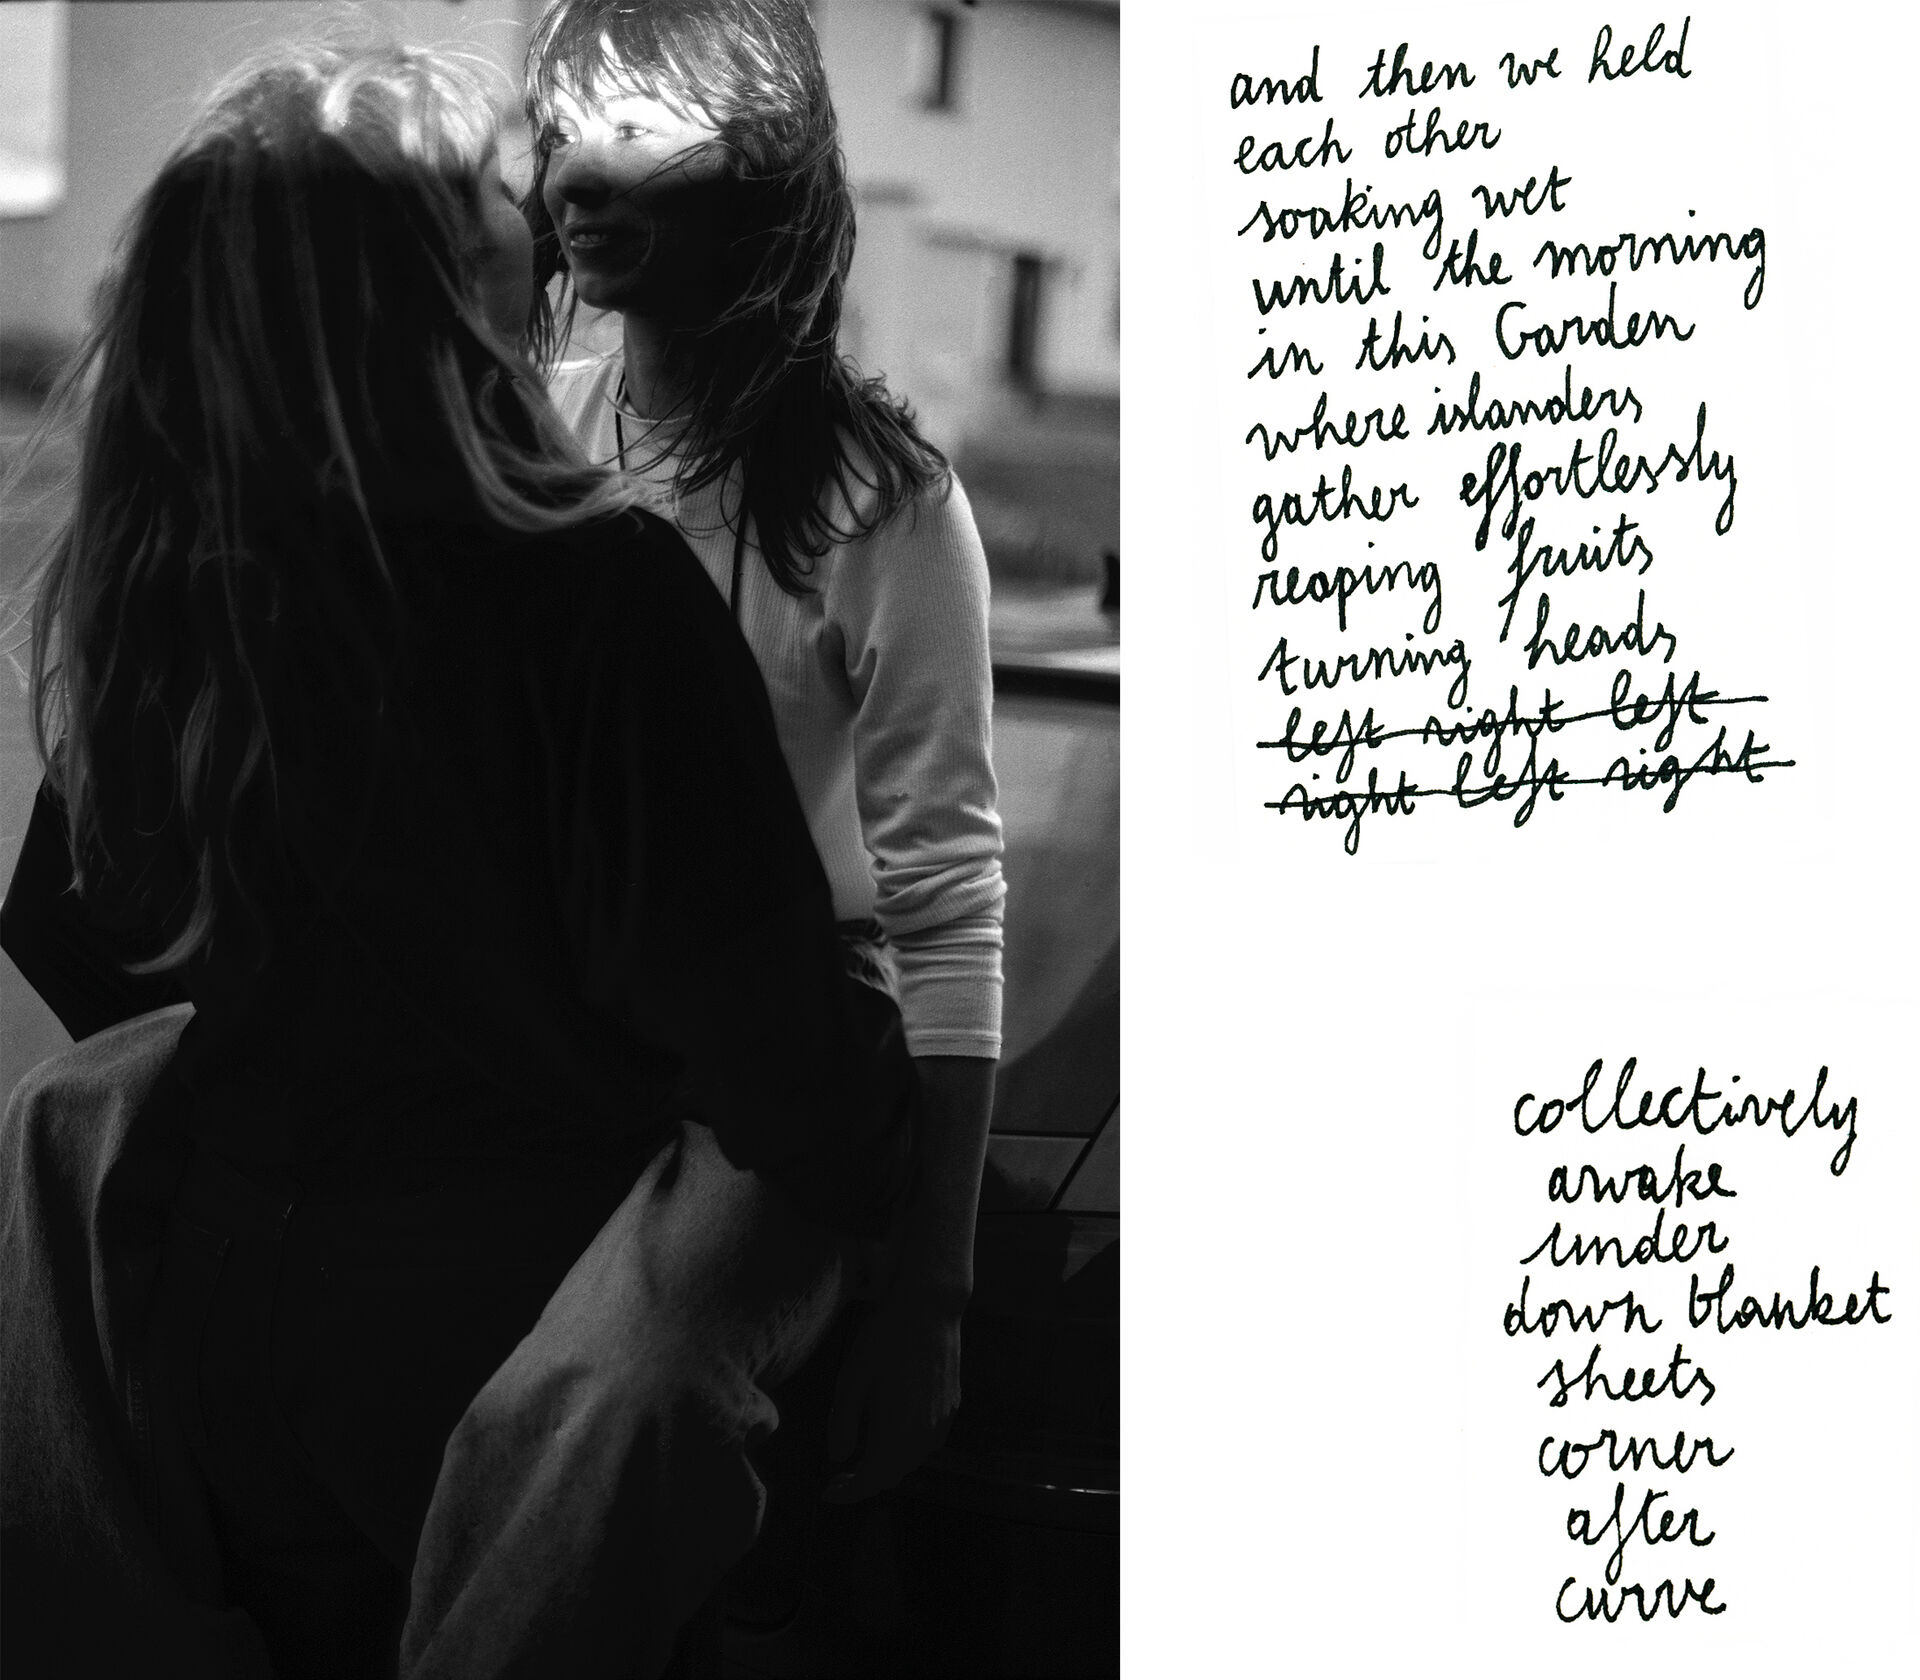 and then we held
each other
soaking wet
until the morning
in this Garden
where islanders
gather effortlessly
reaping fruits
turning heads
left right left
right left right
collectively
awake
under
down blanket
sheets
corner
after
curve